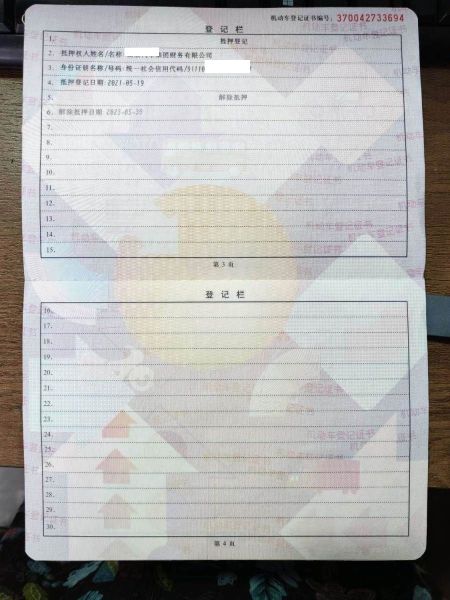 机动车登记证书编号：370042733694
登记栏
1. 抵押登记
2. 抵押权人姓名/名称 团财务有限公司
3. 身份证明名称/号码:统一社会信用代码/91110
4. 抵押登记日期:2021-05-19
5. 解除抵押
6. 解除抵押日期:2023-05-30
7.
8.
9.
10.
11.
12.
13.
14.
15.
第 3 页
登记栏
16.
17.
18.
19.
20.
21.
22.
23.
24.
25.
26.
27.
28.
29.
30.
第 4 页